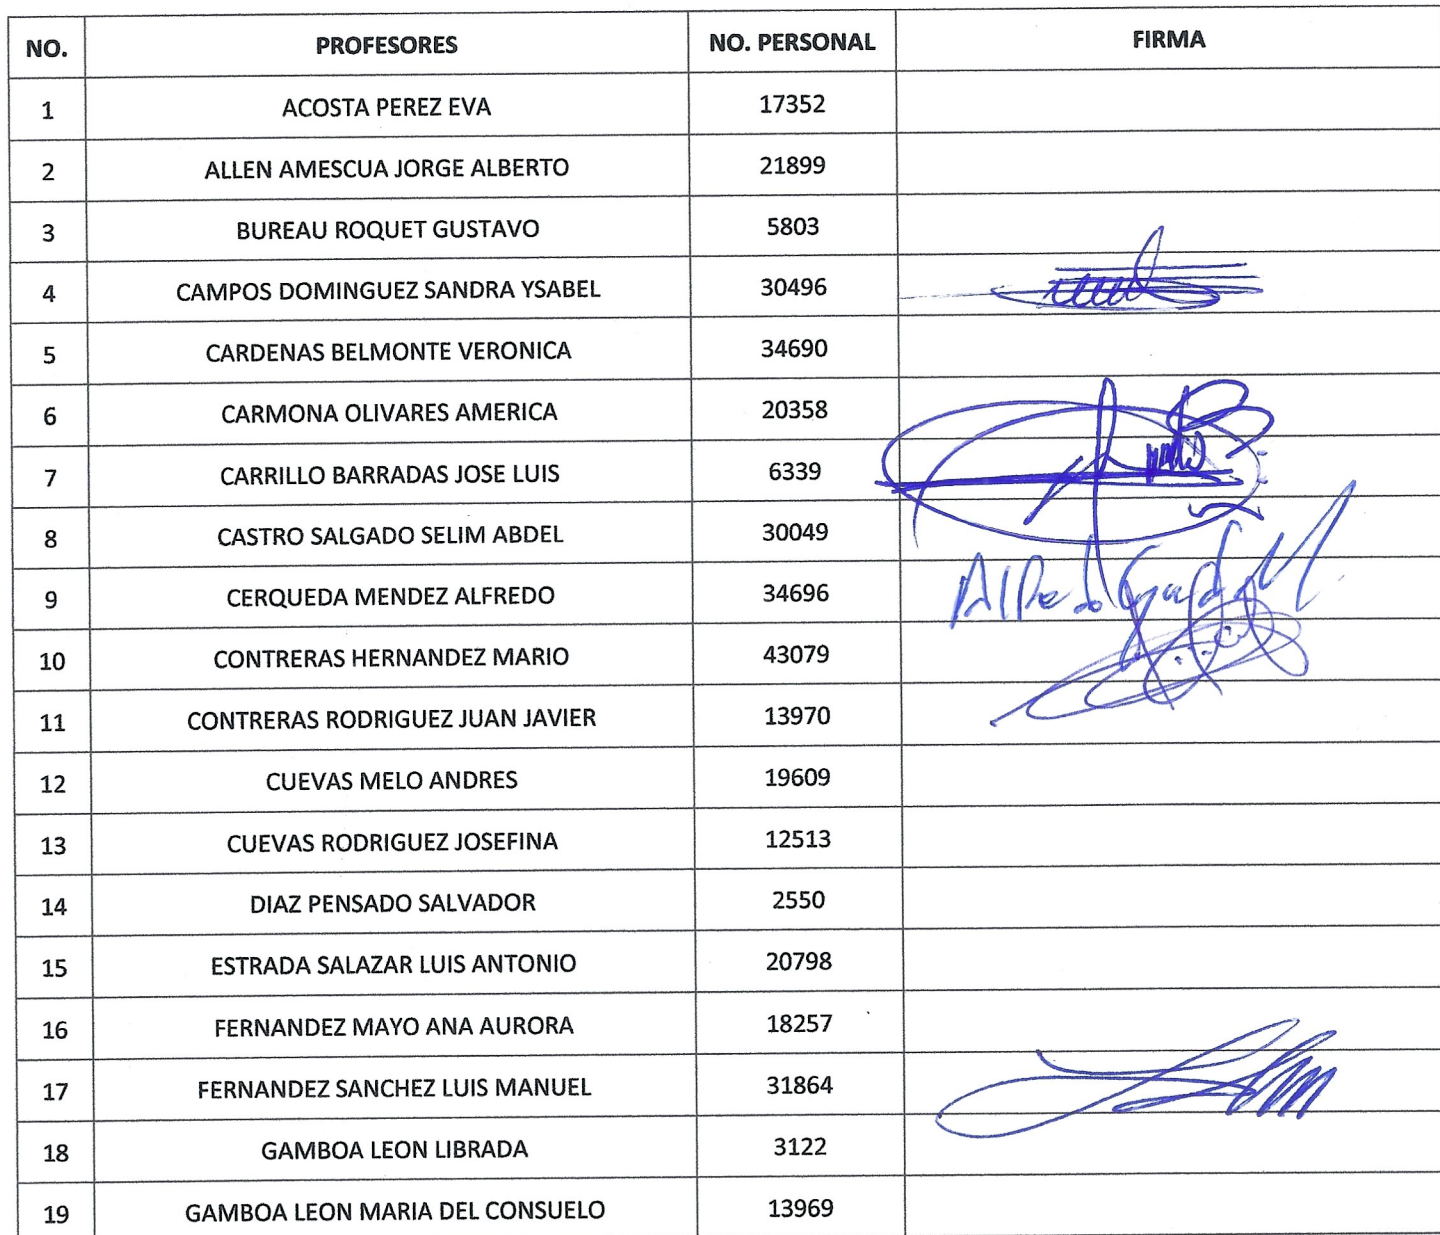 NO. PROFESORES NO. PERSONAL FIRMA
1 ACOSTA PEREZ EVA 17352
2 ALLEN AMESCUA JORGE ALBERTO 21899
3 BUREAU ROQUET GUSTAVO 5803
4 CAMPOS DOMINGUEZ SANDRA YSABEL 30496
5 CARDENAS BELMONTE VERONICA 34690
6 CARMONA OLIVARES AMERICA 20358
7 CARRILLO BARRADAS JOSE LUIS 6339
8 CASTRO SALGADO SELIM ABDEL 30049
9 CERQUEDA MENDEZ ALFREDO 34696 Alfredo
10 CONTRERAS HERNANDEZ MARIO 43079
11 CONTRERAS RODRIGUEZ JUAN JAVIER 13970
12 CUEVAS MELO ANDRES 19609
13 CUEVAS RODRIGUEZ JOSEFINA 12513
14 DIAZ PENSADO SALVADOR 2550
15 ESTRADA SALAZAR LUIS ANTONIO 20798
16 FERNANDEZ MAYO ANA AURORA 18257
17 FERNANDEZ SANCHEZ LUIS MANUEL 31864
18 GAMBOA LEON LIBRADA 3122
19 GAMBOA LEON MARIA DEL CONSUELO 13969